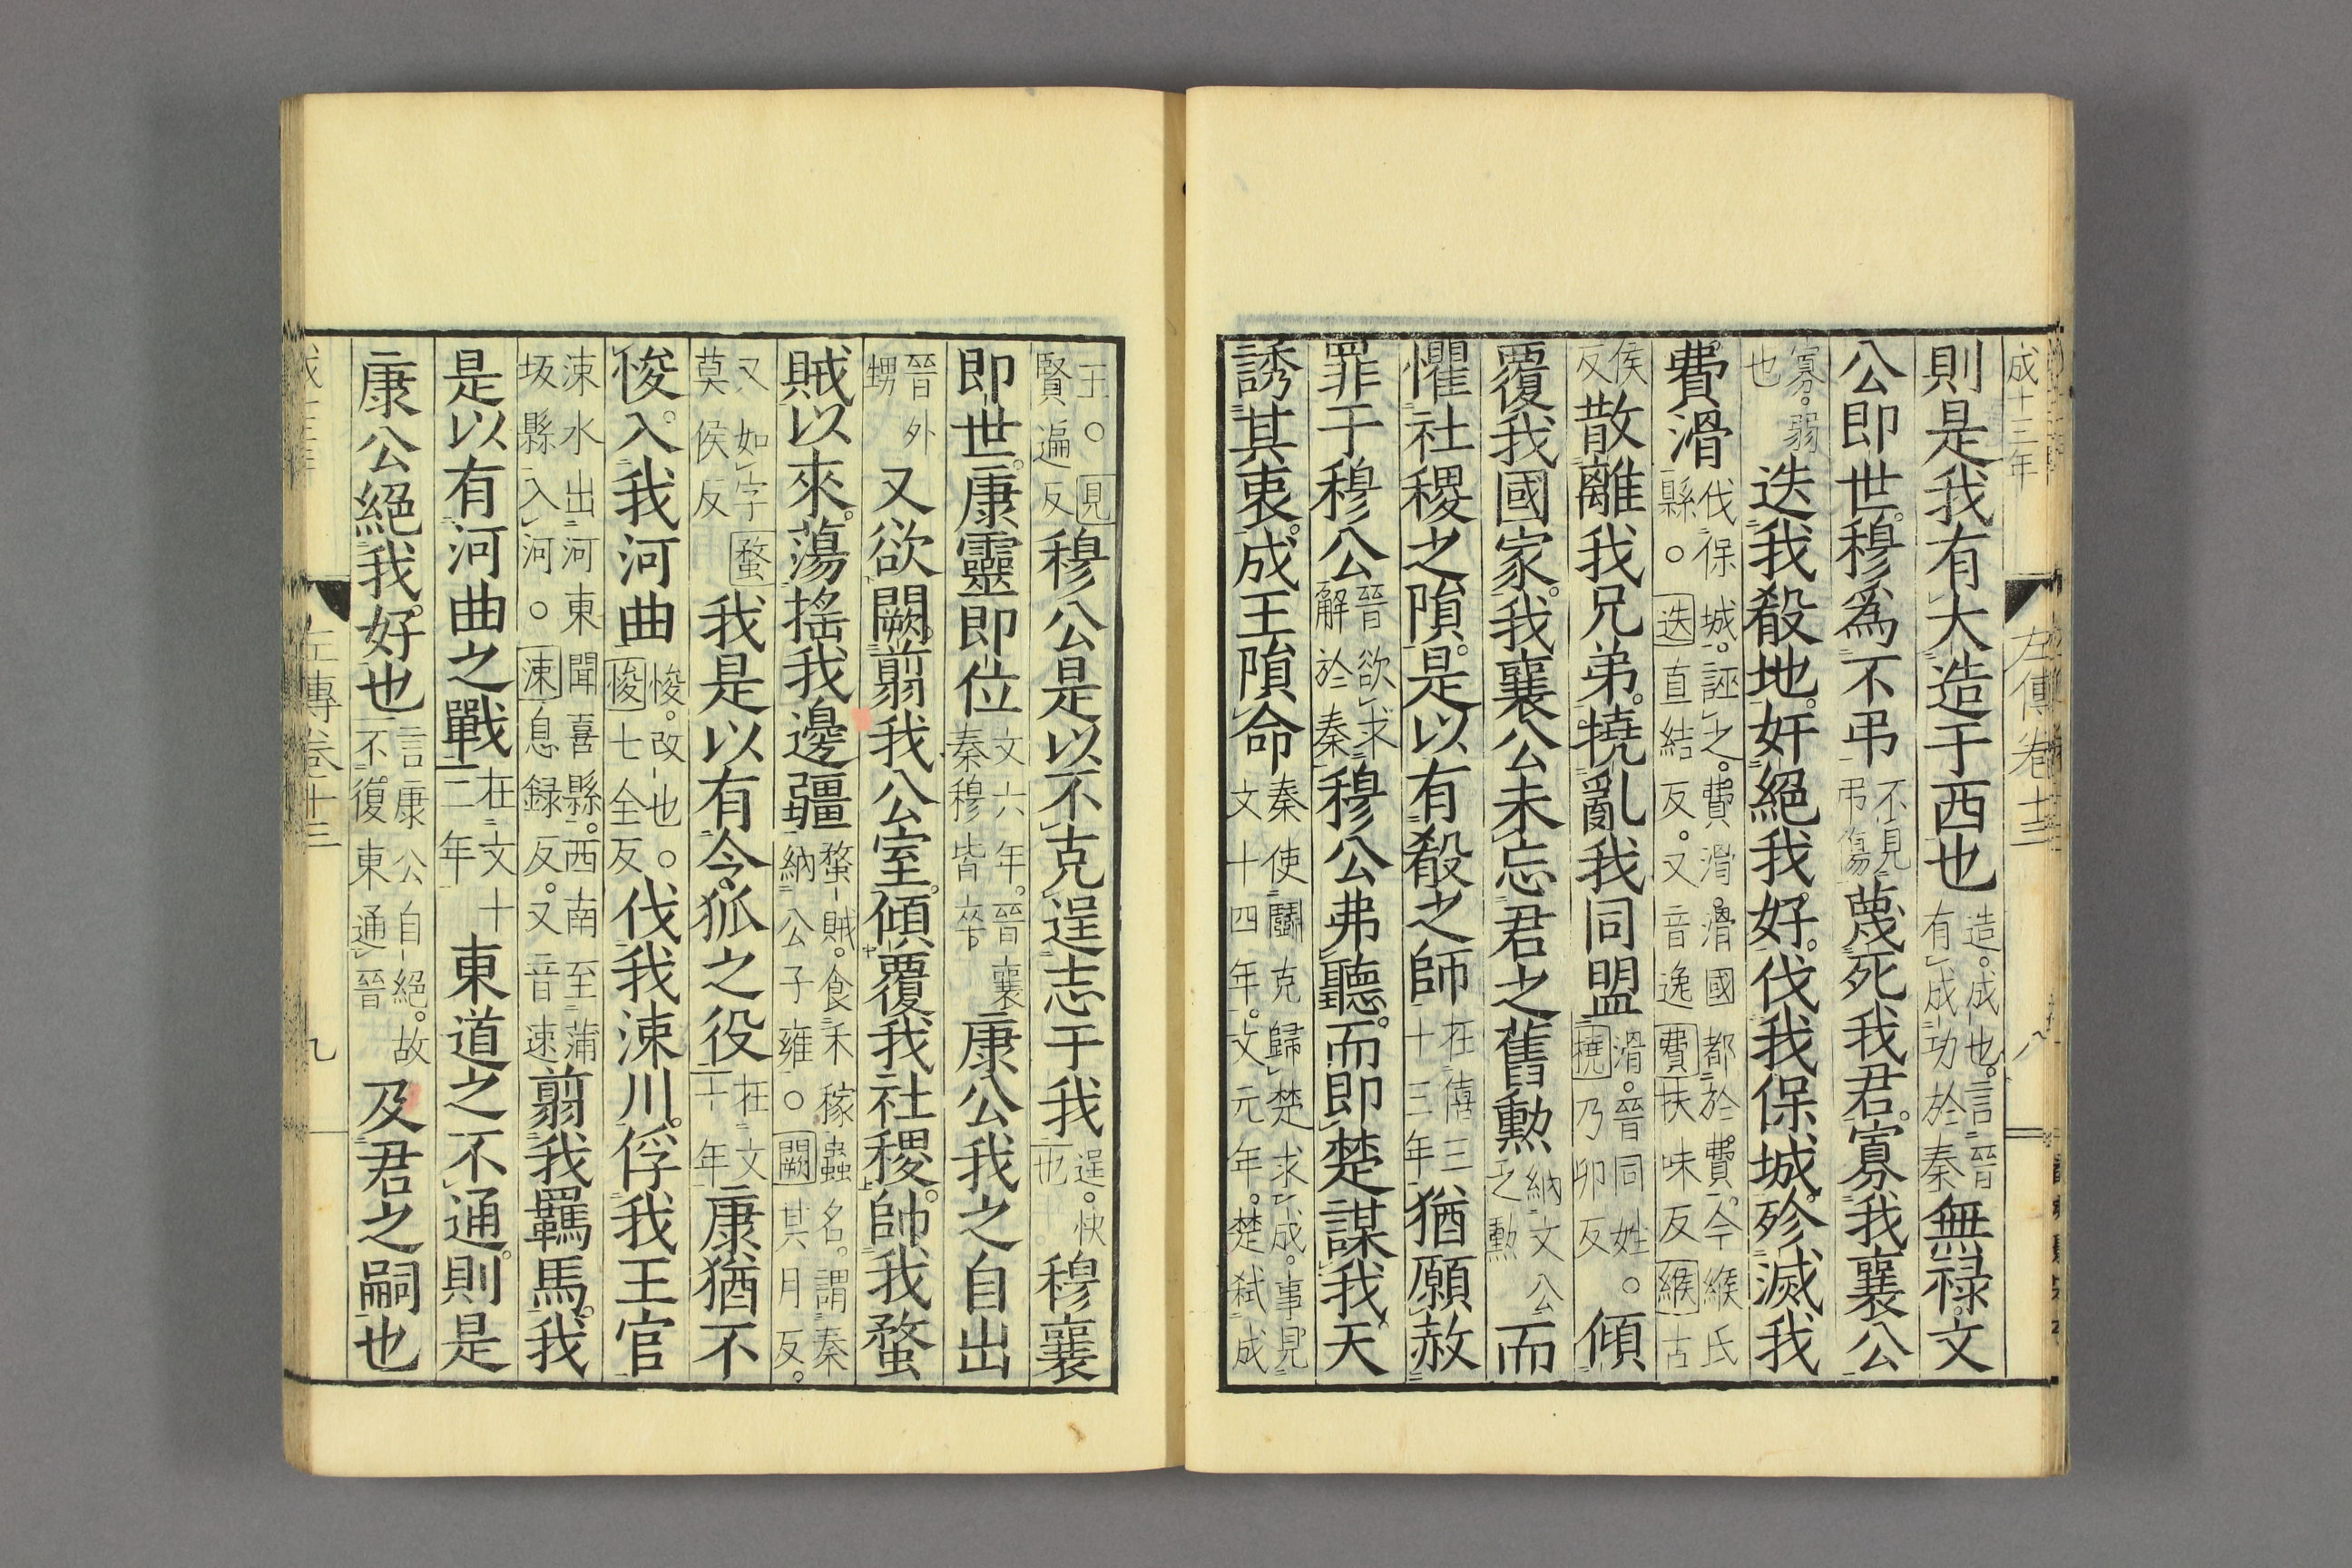 成十三年
左傳卷十三
八
則是我有大造于西也造。成也。言晉有成功於秦無祿。文
公即世。穆爲不弔不見弔傷蔑死我君。寡我襄公
寡。弱也迭我殽地。奸絕我好。伐我保城。殄滅我
費滑伐保城。誣之。費滑。滑國都於費。今緱氏縣○迭直結反。又音逸費扶味反緱古
侯反散離我兄弟。撓亂我同盟滑。晉同姓。○撓乃卯反傾
覆我國家。我襄公未忘君之舊勲納文公之勲而
懼社稷之隕。是以有殽之師在僖三十三年猶願赦
罪于穆公晉欲求解於秦穆公弗聽。而即楚謀我。天
誘其衷。成王隕命秦使鬭克歸楚求成。事見文十四年。文元年。楚弑成
王。○見賢遍反穆公是以不克逞志于我逞。快也穆襄
即世。康靈即位文六年。晉襄秦穆皆卒。康公我之自出
晉外甥又欲闕翦我公室。傾覆我社稷。帥我蝥
賊以來。蕩搖我邊疆蝥賊。食禾稼蟲名。謂秦納公子雍。○闕其月反。
又如字蝥莫侯反我是以有令狐之役在文十年康猶不
悛。入我河曲悛。改也。○悛七全反伐我涑川。俘我王官
涑水出河東聞喜縣。西南至蒲坂縣入河。○涑息錄反。又音速翦我羈馬。我
是以有河曲之戰在文十二年東道之不通。則是
康公絕我好也言康公自絕。故不復東通晉及君之嗣也
左傳卷十三
九